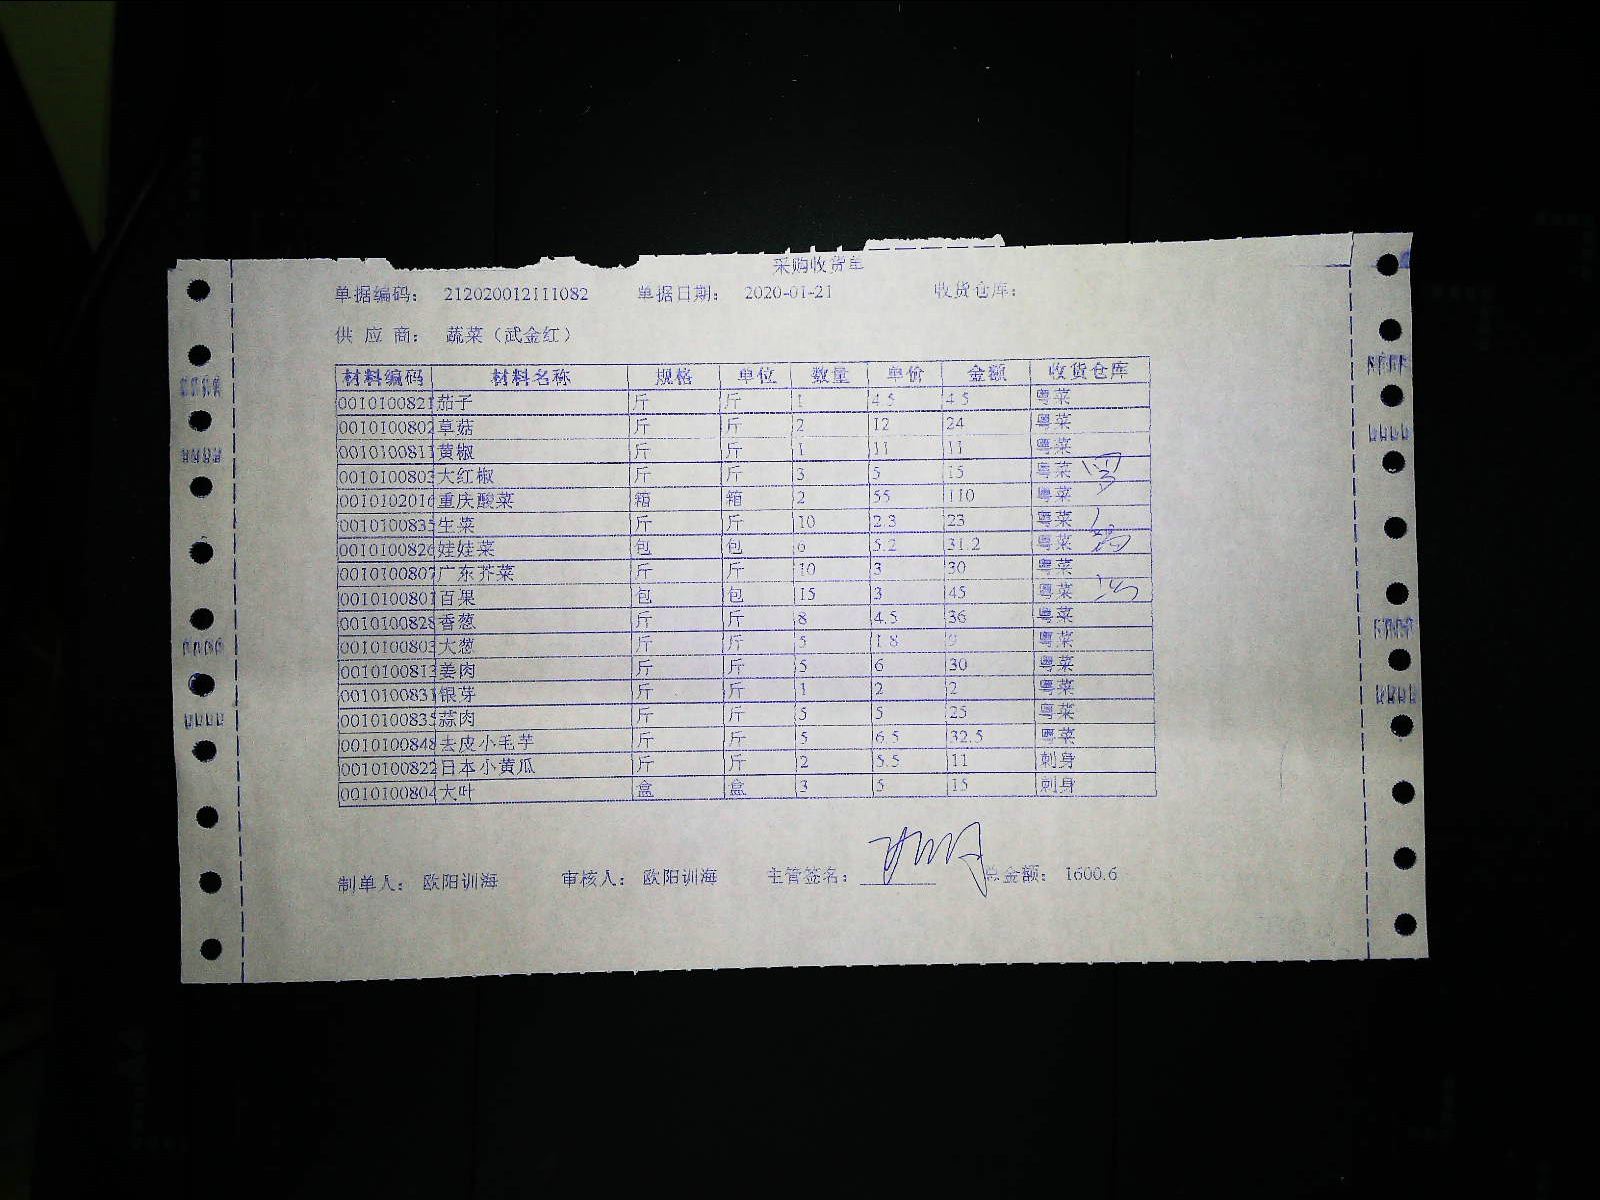 采购收货单
单据编码： 212020012111082 单据日期： 2020-01-21 收货仓库：
供 应 商： 蔬菜（武金红）
材料编码 材料名称 规格 单位 数量 单价 金额 收货仓库
0010100821 茄子 斤 斤 1 4.5 4.5 粤菜
0010100802 草菇 斤 斤 2 12 24 粤菜
0010100811 黄椒 斤 斤 1 11 11 粤菜
0010100803 大红椒 斤 斤 3 5 15 粤菜
0010102016 重庆酸菜 箱 箱 2 55 110 粤菜
0010100835 生菜 斤 斤 10 2.3 23 粤菜
0010100826 娃娃菜 包 包 6 5.2 31.2 粤菜
0010100807 广东芥菜 斤 斤 10 3 30 粤菜
0010100801 百果 包 包 15 3 45 粤菜
0010100828 香葱 斤 斤 8 4.5 36 粤菜
0010100803 大葱 斤 斤 5 1.8 9 粤菜
0010100813 姜肉 斤 斤 5 6 30 粤菜
0010100831 银芽 斤 斤 1 2 2 粤菜
0010100835 蒜肉 斤 斤 5 5 25 粤菜
0010100848 去皮小毛芋 斤 斤 5 6.5 32.5 粤菜
0010100822 日本小黄瓜 斤 斤 2 5.5 11 刺身
0010100804 大叶 盒 盒 3 5 15 刺身
制单人： 欧阳训海 审核人： 欧阳训海 主管签名： 总金额： 1600.6